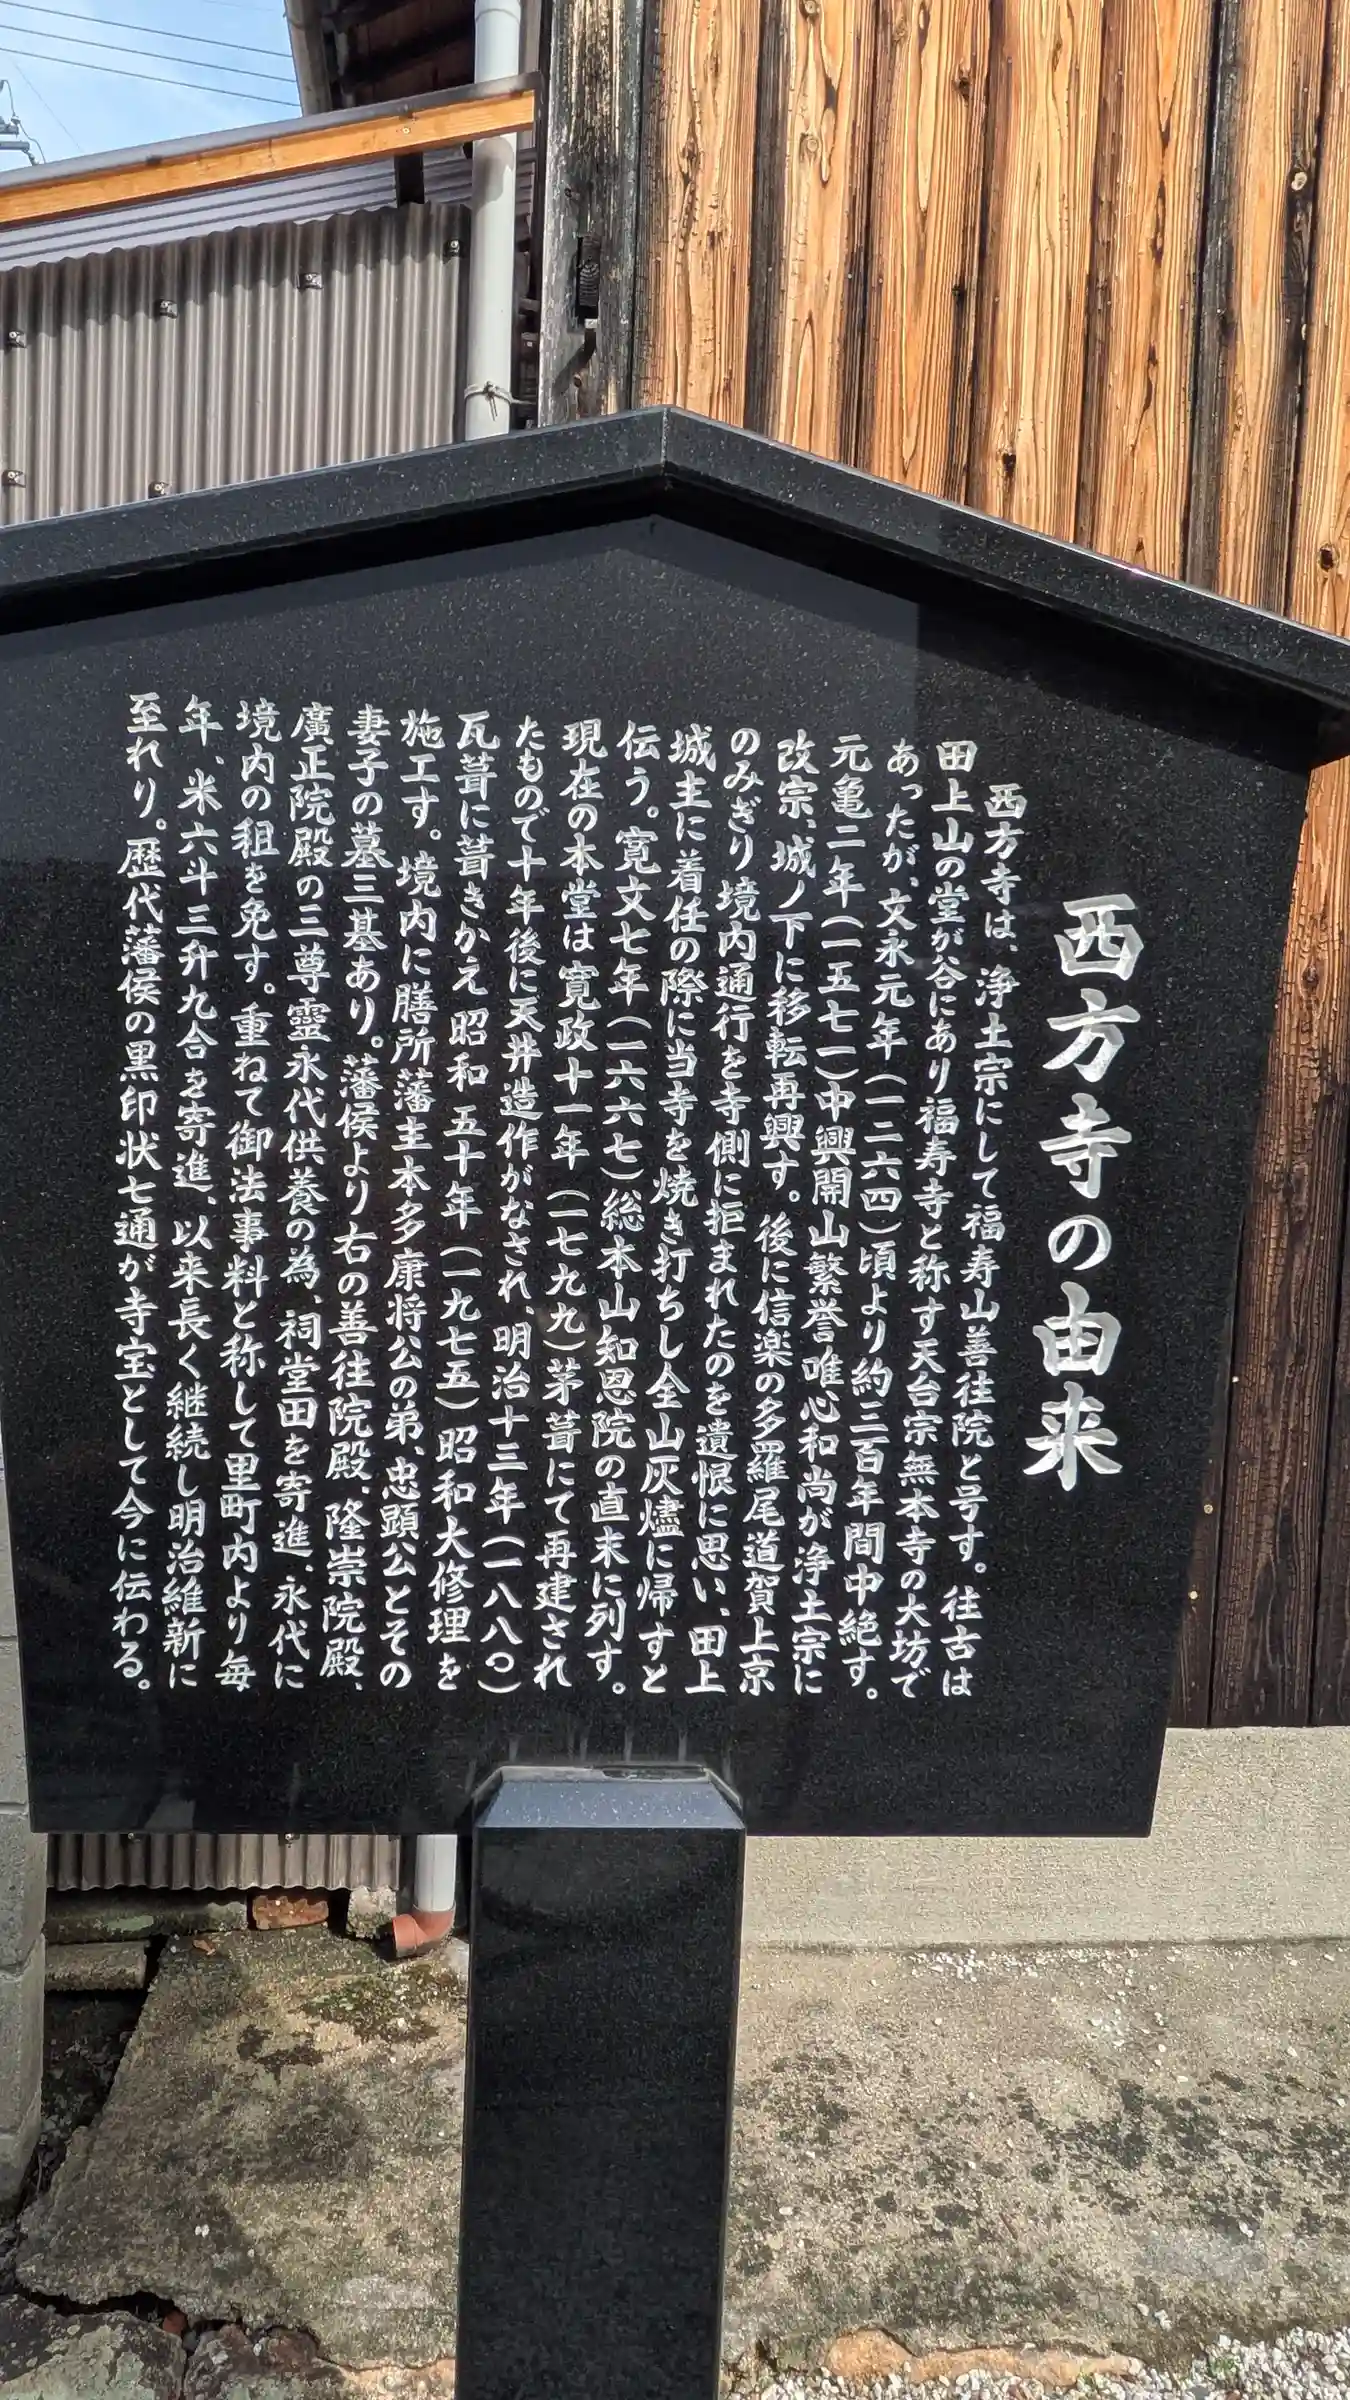 西方寺の由来
西方寺は、浄土宗にして福寿山善往院と号す。往古は
田上山の堂が谷にあり福寿寺と称す天台宗無本寺の大坊で
あったが、文永元年(一二六四)頃より約三百年間中絶す。
元亀二年(一五七一)中興開山繁誉唯心和尚が浄土宗に
改宗、城ノ下に移転再興す。後に信楽の多羅尾道賀上京
のみぎり境内通行を寺側に拒まれたのを遺恨に思い、田上
城主に着任の際に当寺を焼き打ちし全山灰燼に帰すと
伝う。寛文七年(一六六七)総本山知恩院の直末に列す。
現在の本堂は寛政十一年(一七九九)茅葺にて再建され
たもので十年後に天井造作がなされ、明治十三年(一八八〇)
瓦葺に葺きかえ昭和五十年(一九七五)昭和大修理を
施工す。境内に膳所藩主本多康将公の弟、忠顕公とその
妻子の墓三基あり。藩侯より右の善往院殿、隆崇院殿、
廣正院殿の三尊霊永代供養の為、祠堂田を寄進、永代に
境内の租を免す。重ねて御法事料と称して里町内より毎
年、米六斗三升九合を寄進、以来長く継続し明治維新に
至れり。歴代藩侯の黒印状七通が寺宝として今に伝わる。